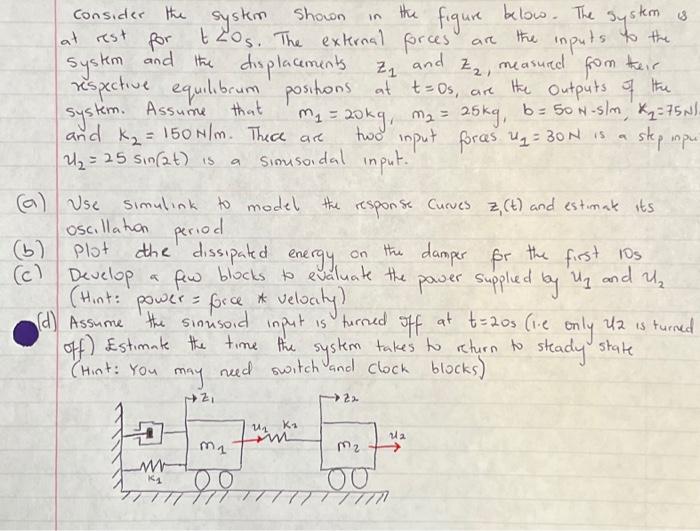 Consider the system shown in the figure below. The system is
at rest for t<0s. The external forces are the inputs to the
system and the displacements z1 and z2, measured from their
respective equilibrum positions at t=0s, are the outputs of the
system. Assume that m1 = 20kg, m2 = 25kg, b = 50 N-s/m, K1=75N/
and K2 = 150 N/m. There are two input forces. u1 = 30N is a step inpu
u2 = 25 sin(2t) is a sinusoidal input.
(a) Use simulink to model the response curves z1(t) and estimate its
oscillation period
(b) Plot the dissipated energy on the damper for the first 10s
(c) Develop a few blocks to evaluate the power supplied by u1 and u2
(Hint: power = force * velocity)
(d) Assume the sinusoid input is turned off at t=20s (i.e only u2 is turned
off) Estimate the time the system takes to return to steady state
(Hint: You may need switch and clock blocks)
→z1 →z2
u1 K2
m1 m2 u2
K1